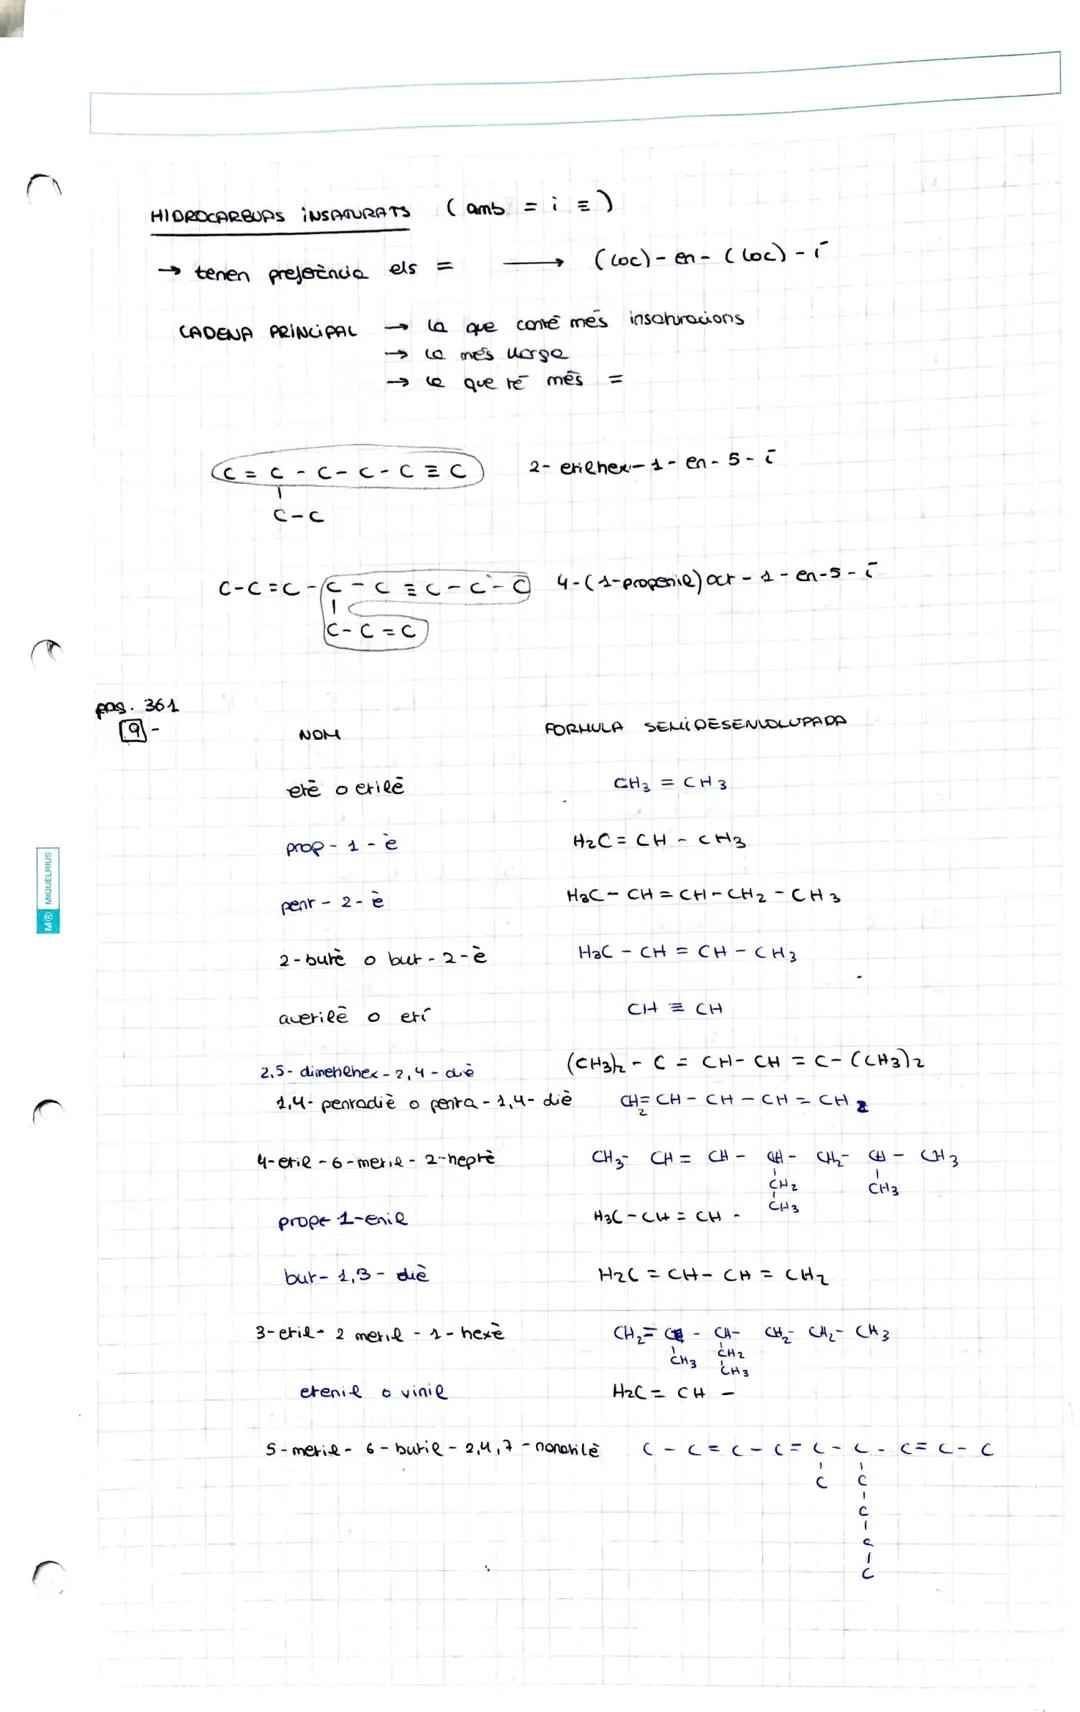 HIDROCARBURS INSATURATS (amb = i ≡)
→ tenen preferència els = → (loc) - en - (loc) - í
CADENA PRINCIPAL → la que conté més insaturacions
→ la més llarga
→ la que té més =
C = C - C - C - C ≡ C 2- etilhex - 1 - en - 5 - í
C - C
C - C = C - C - C ≡ C - C - C 4-(1-propenil) oct - 1 - en - 5 - í
C - C = C
pag. 361
9 -
NOM FORMULA SEMIDESENVOLUPADA
etè o etilè CH3 = CH3
prop - 1 - è H2C = CH - CH3
pent - 2 - è H3C - CH = CH - CH2 - CH3
2-butè o but - 2 - è H3C - CH = CH - CH3
acetilè o etí CH ≡ CH
2,5 - dimetilhex - 2,4 - diè (CH3)2 - C = CH - CH = C - (CH3)2
1,4 - pentadiè o penta - 1,4 - diè CH2 = CH - CH - CH = CH2
4-etil - 6 - metil - 2 - heptè CH3 - CH = CH - CH - CH2 - CH - CH3
CH2 CH3
CH3
1-enil H3C - CH = CH -
but - 1,3 - diè H2C = CH - CH = CH2
3-etil - 2 metil - 1 - hexè CH2 = C - CH - CH2 - CH2 - CH3
CH3 CH2
CH3
etenil o vinil H2C = CH -
5 - metil - 6 - butil - 2,4,7 - C - C = C - C = C - C - C = C - C
C C
C
C
C
M® MIQUELRIUS